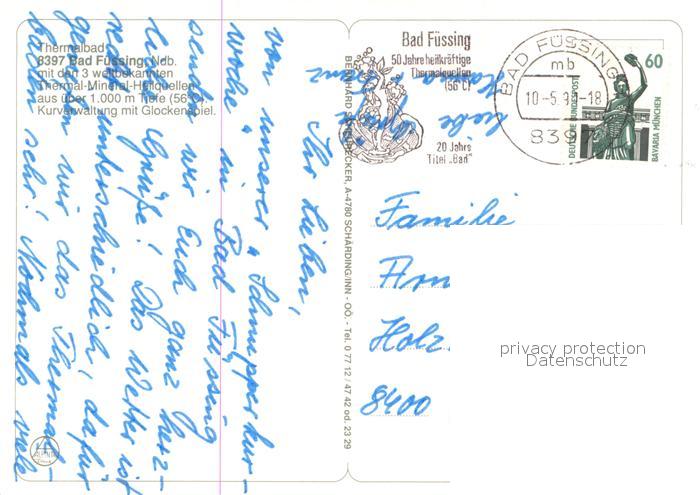 Thermalbad
8397 Bad Füssing, Ndb.
mit den 3 weltbekannten
Thermal-Mineral-Heilquellen
aus über 1.000 m Tiefe (56°C)
Kurverwaltung mit Glockenspiel.
Ihr Lieben,
von unserer "Schnupperkur-
woche" in Bad Füssing
senden wir Euch ganz herz-
liche Grüße! Das Wetter ist
recht unterschiedlich, dafür
genießen wir das Thermal-
baden sehr! Nochmals viele
liebe
BERNHARD A-4780 SCHÄRDING/INN - OÖ. - Tel. 0 77 12 / 47 42 od. 23 29
Bad Füssing
50 Jahre heilkräftige
Thermalquellen
(56°C)
20 Jahre
Titel „Bad"
BAD FÜSSING
mb
10.-5. -18
839
60
DEUTSCHE BUNDESPOST
BAVARIA MÜNCHEN
Familie
8400
privacy protection
Datenschutz